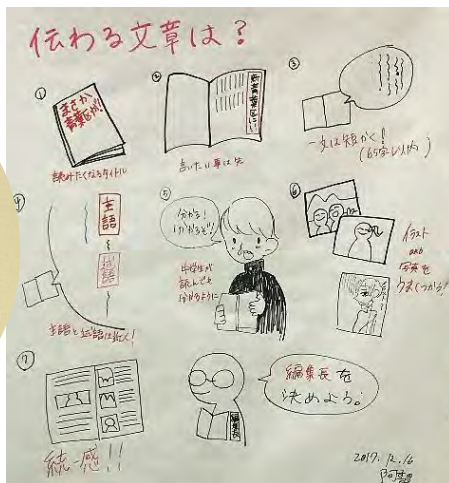 伝わる文章は?
①
まさか
青葉区が!
読みたくなるタイトル
②
言いたい事は先
③
一文は短かく!
(65字以内)
④
主語
述語
主語と述語は近く!
⑤
分かる!
わかるぞ!!
中学生が
読んでも
分かるように
⑥
イラスト
and
写真を
うまくつかう!
⑦
統一感!!
編集長
編集長を
決めよう。
2017.12.16